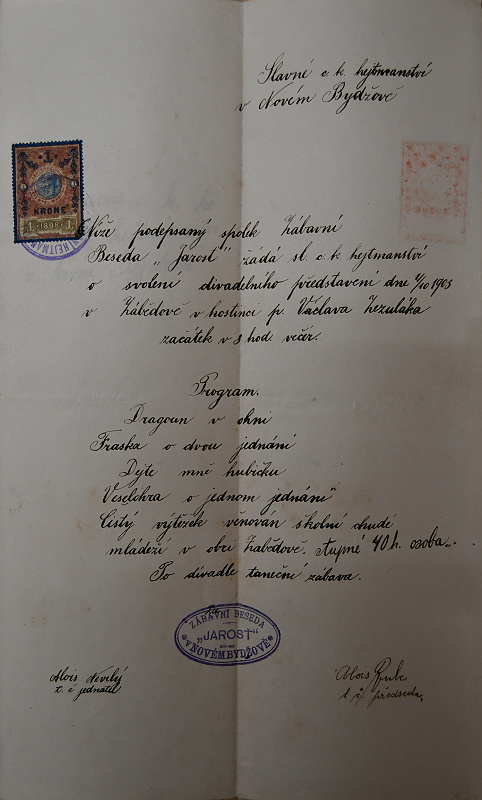 Slavné c. k. hejtmanství
v Novém Bydžově
1
KRONE
1 1898 1
Níže podepsaný spolek Zábavní
Beseda „Jarosť" žádá sl. c. k. hejtmanství
o svolení divadelního představení dne 4/10 1903
v Zábědově v hostinci p. Václava Zezuláka
začátek v 8 hod. večer.
Program.
Dragoun v ohni
Fraska o dvou jednání
Dejte mně hubičku
Veselohra o jednom jednání
Čistý výtěžek věnován školní chudé
mládeži v obci Zabědově. stupné 40 h. osoba.
Po divadle taneční zábava.
Za
ZÁBAVNÍ BESEDA
„JAROSŤ"
v NOVÉM BYDŽOVĚ
Alois Nevilý
t. č jednatel
Alois
t. č. předseda